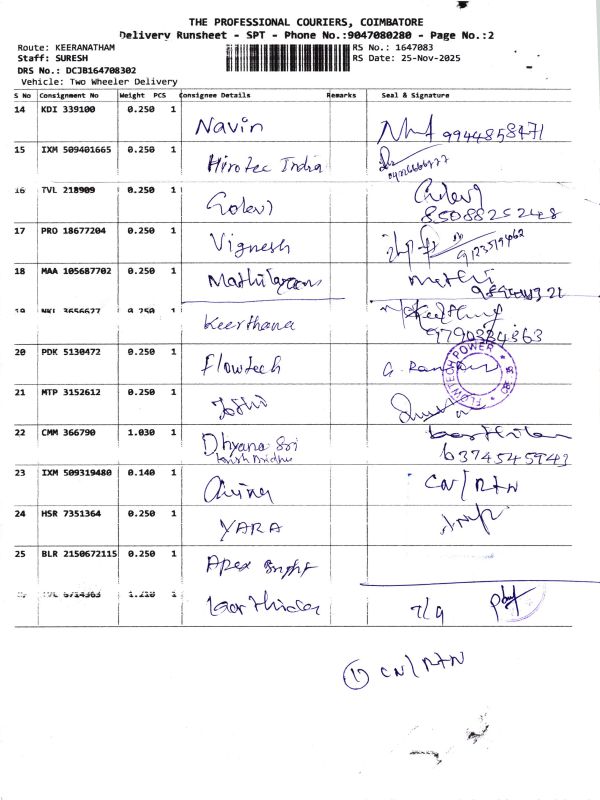 THE PROFESSIONAL COURIERS, COIMBATORE
Delivery Runsheet - SPT - Phone No.:9047080280 - Page No.:2
Route: KEERANATHAM
RS No.: 1647083
Staff: SURESH
RS Date: 25-Nov-2025
DRS No.: DCJB164708302
Vehicle: Two Wheeler Delivery
S No Consignment No Weight PCS Consignee Details Remarks Seal & Signature
14 KDI 339100 0.250 1 Navin 9944858471
15 IXM 509401665 0.250 1 Hirotec India
16 TVL 218909 0.250 1 8508825248
17 PRO 18677204 0.250 1 Vignesh
18 MAA 105687702 0.250 1
19 NKL 3656627 0.250 1 Keerthana 9790334363
20 PDK 5130472 0.250 1 Flowtech FLOWTECH POWER
21 MTP 3152612 0.250 1
22 CMM 366790 1.030 1 Dhyana Sri 6374545943
23 IXM 509319480 0.140 1 CN/RTN
24 HSR 7351364 0.250 1 YARA
25 BLR 2150672115 0.250 1 Apex
TVL 6714363 1.210 1
1 CN/RTN